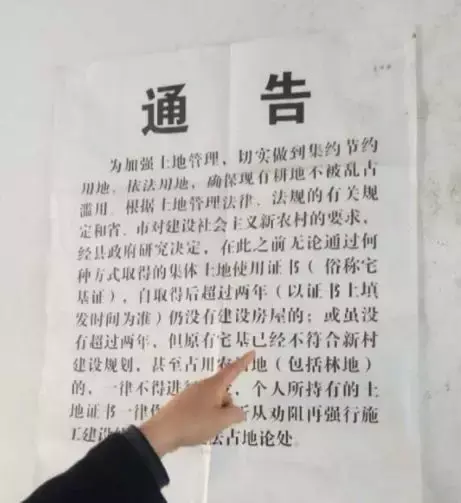 通告
为加强土地管理，切实做到集约节约
用地、依法用地，确保现有耕地不被乱占
滥用。根据土地管理法律、法规的有关规
定和省、市对建设社会主义新农村的要求，
经县政府研究决定，在此之前无论通过何
种方式取得的集体土地使用证书（俗称宅
基证），自取得后超过两年（以证书上填
发时间为准）仍没有建设房屋的；或虽没
有超过两年，但原有宅基已经不符合新村
建设规划，甚至占用农地（包括林地）
的，一律不得进，个人所持有的土
地证书一律从劝阻再强行施
工建设法占地论处。